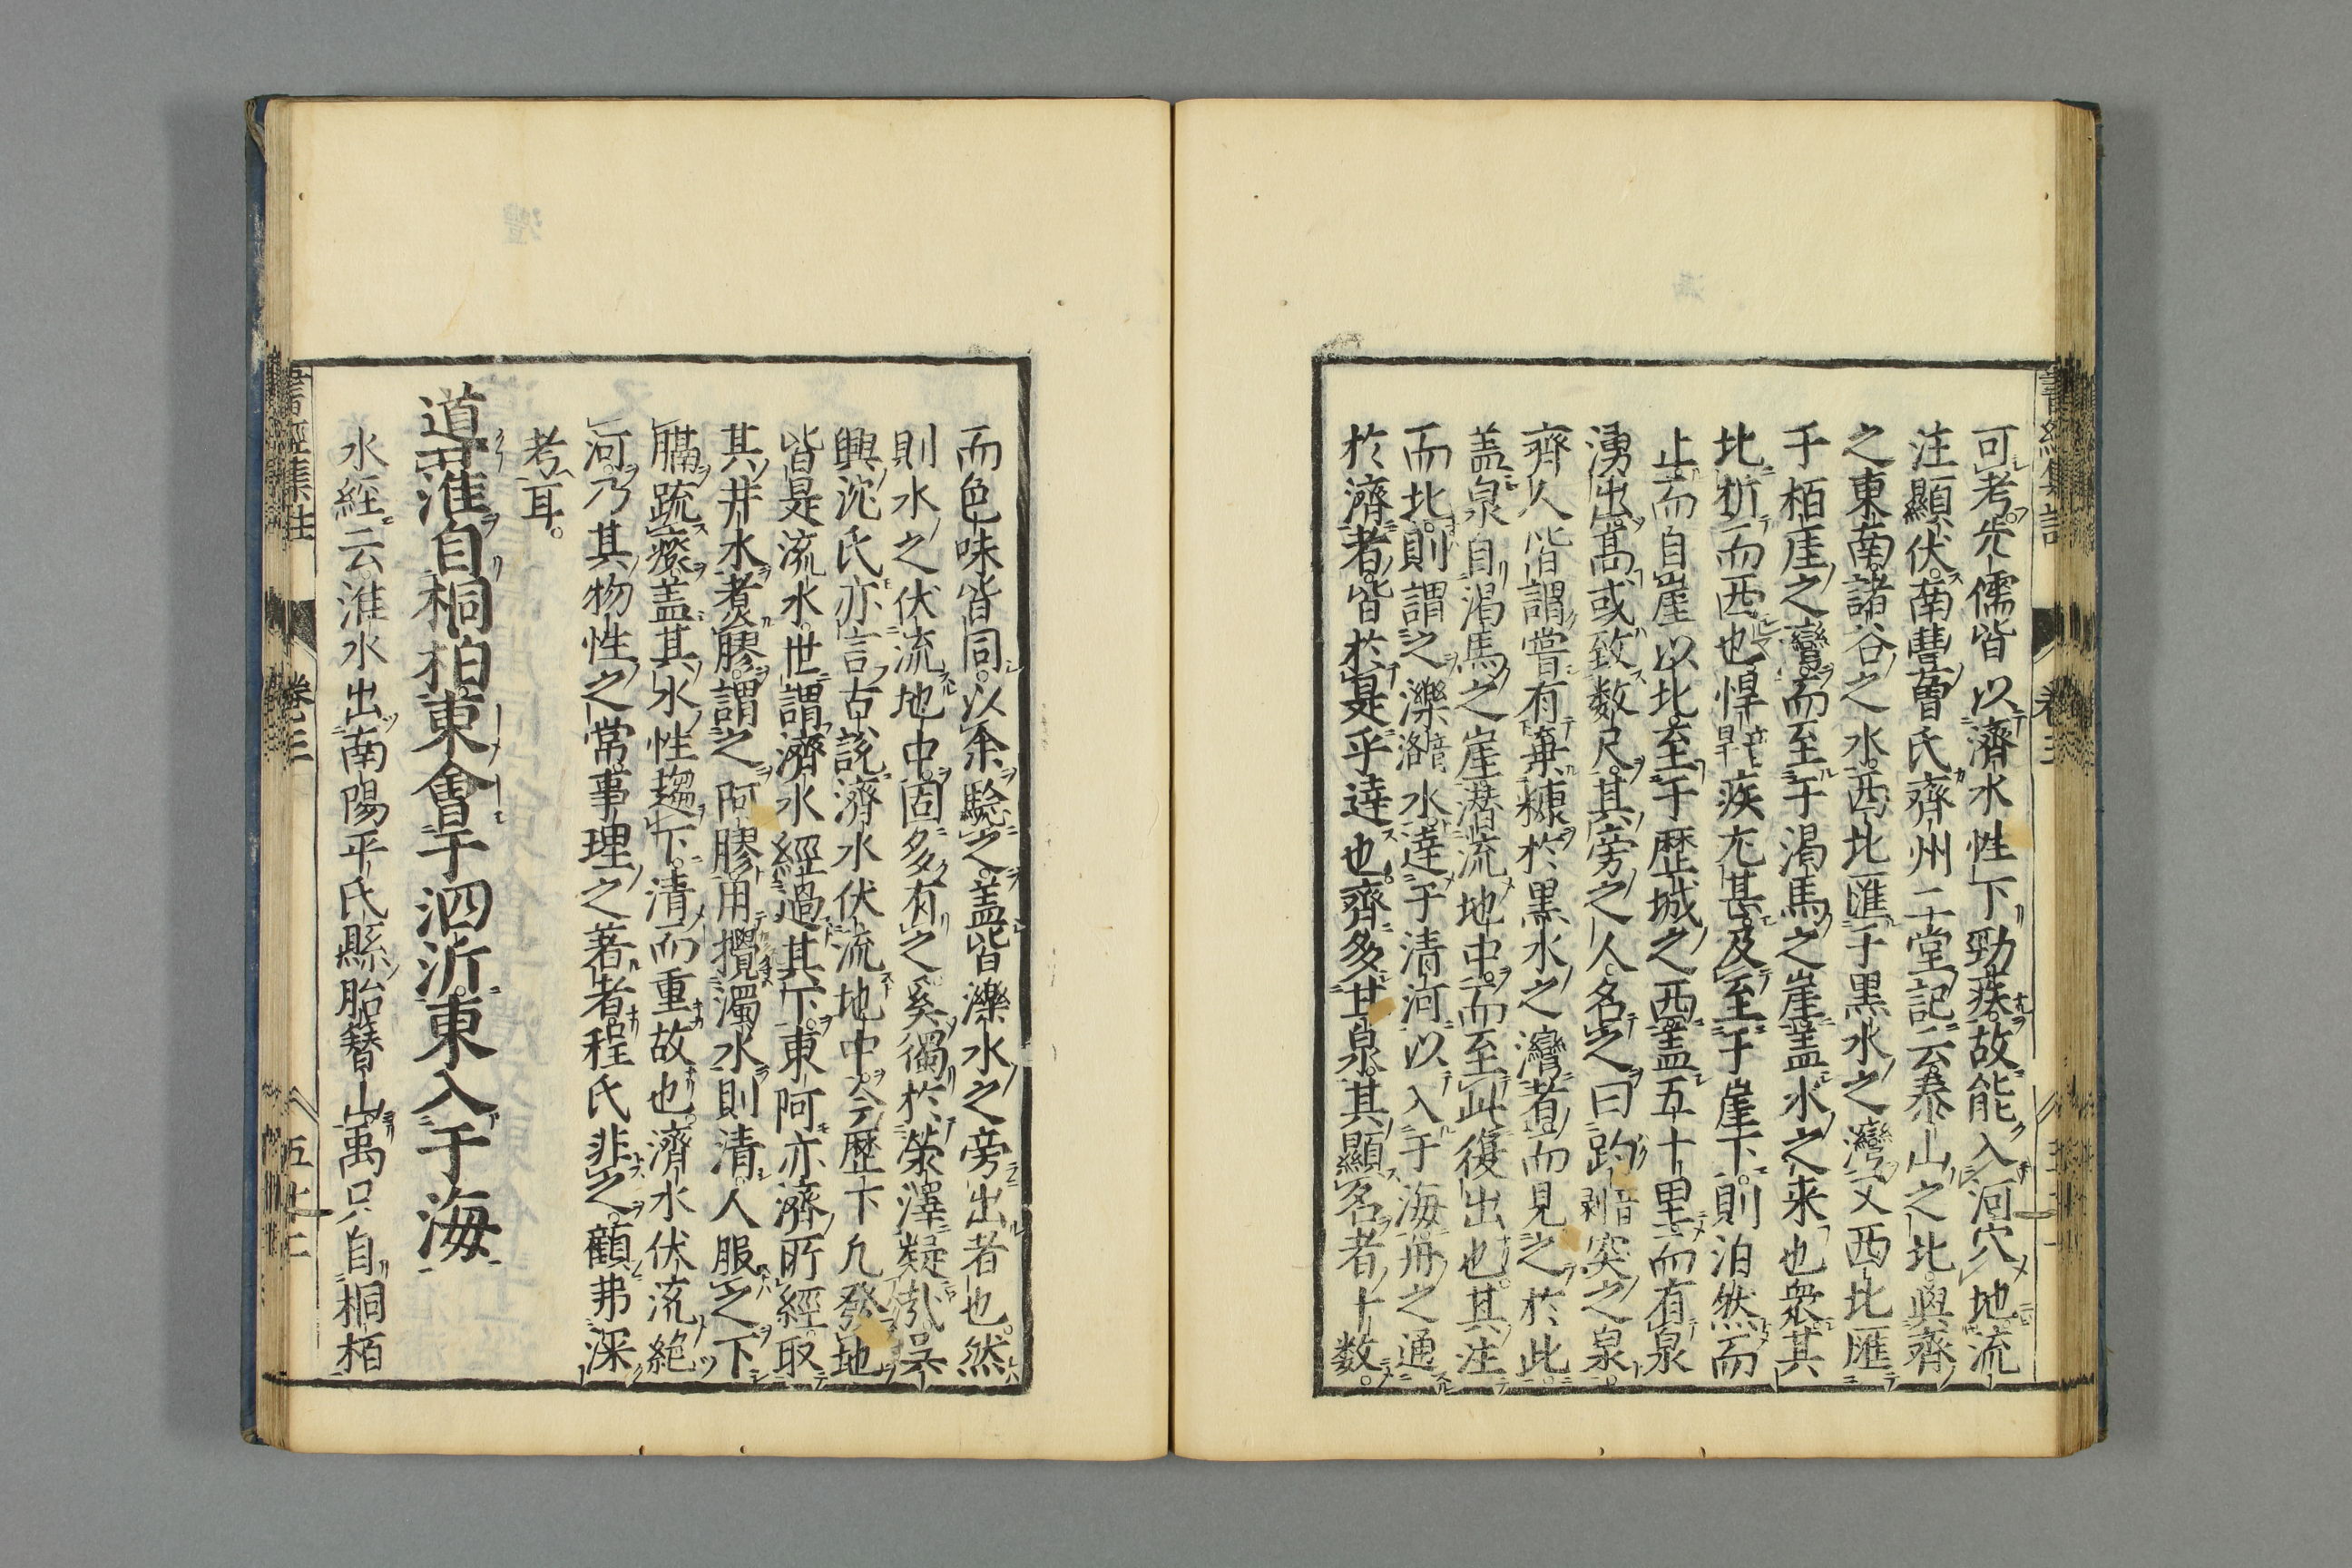 可考先儒皆以濟水性下勁疾故能入河穴地流
注顯伏南豊曽氏齊州二堂記云泰山之北與齊
之東南諸谷之水西北匯于黒水之灣又西北匯
于栢崖之灣而至于渇馬之崖蓋水之来也衆其
北折而西也悍音旱疾尤甚及至于崖下則泊然而
止而自崖以北至于歴城之西蓋五十里而有泉
湧出髙或致数尺其旁之人名之曰趵音剥突之泉
齊人皆謂嘗有棄糠於黒水之灣者而見之於此
盖泉自渇馬之崖潜流地中而至此復出也其注
而北則謂之濼音洛水達于清河以入于海舟之通
於濟者皆於是乎達也齊多甘泉其顯名者十数
而色味皆同以余驗之蓋皆濼水之旁出者也然
則水之伏流地中固多有之奚獨於滎澤疑哉吴
興沈氏亦言古説濟水伏流地中今歴下凡發地
皆是流水世謂濟水經過其下東阿亦濟所經取
其井水煮膠謂之阿膠用攪濁水則清人服之下
膈疏痰蓋其水性趨下清而重故也濟水伏流絶
河乃其物性之常事理之著者程氏非之顧弗深
考耳。
道淮自桐柏東會于泗沂東入于海
水經云淮水出南陽平氏縣胎簪山禹只自桐栢
書經集註
卷三